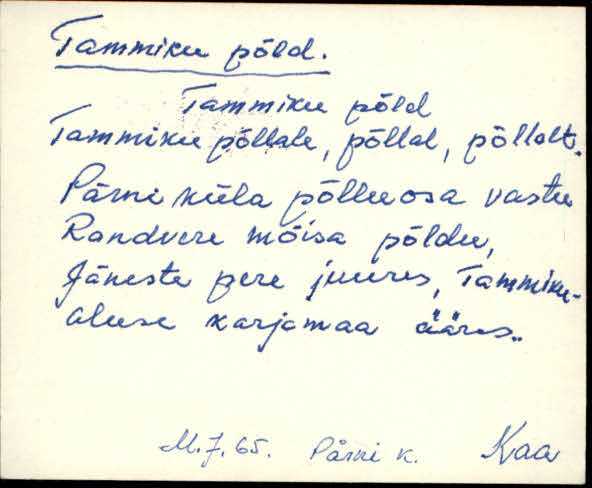 Tammiku põld.
Tammiku põld
Tammiku põllale, põllal, põllalt.
Pärni küla põlluosa vastu
Randvere mõisa põldu,
Jäneste pere juures, Tammiku-
aluse karjamaa ääres.
M.J.65. Pärni k. Kaa